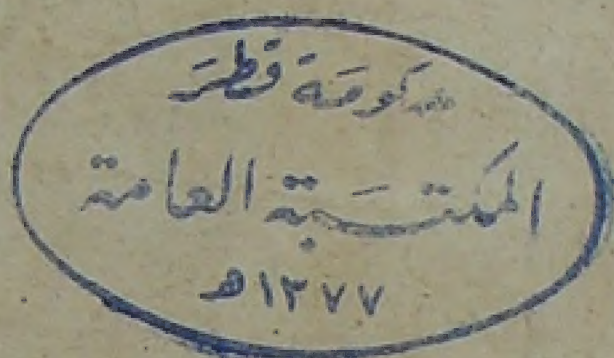 حكومة قطر
المكتبة العامة
١٣٧٧ هـ